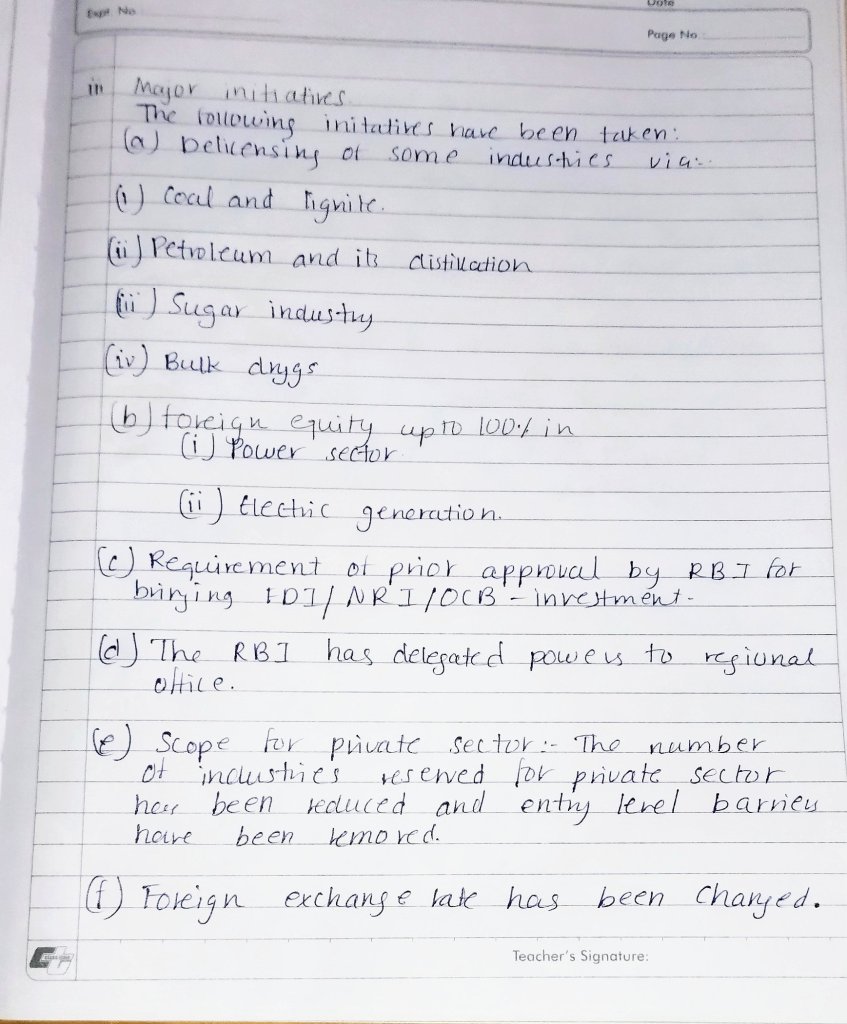 Expt. No.
Date
Page No.
iii Major initiatives.
The following initatives have been taken:
(a) Delicensing of some industries via:-
(i) Coal and lignite.
(ii) Petroleum and its distillation
(iii) Sugar industry
(iv) Bulk drygs
(b) foreign equity upto 100% in
(i) Power sector
(ii) Electric generation.
(c) Requirement of prior approval by RBI for
bringing FDI/NRI/OCB - investment.
(d) The RBI has delegated powers to regional
office.
(e) Scope for private sector:- The number
of industries reserved for private sector
has been reduced and entry level barriers
have been removed.
(f) Foreign exchange rate has been changed.
Teacher's Signature: